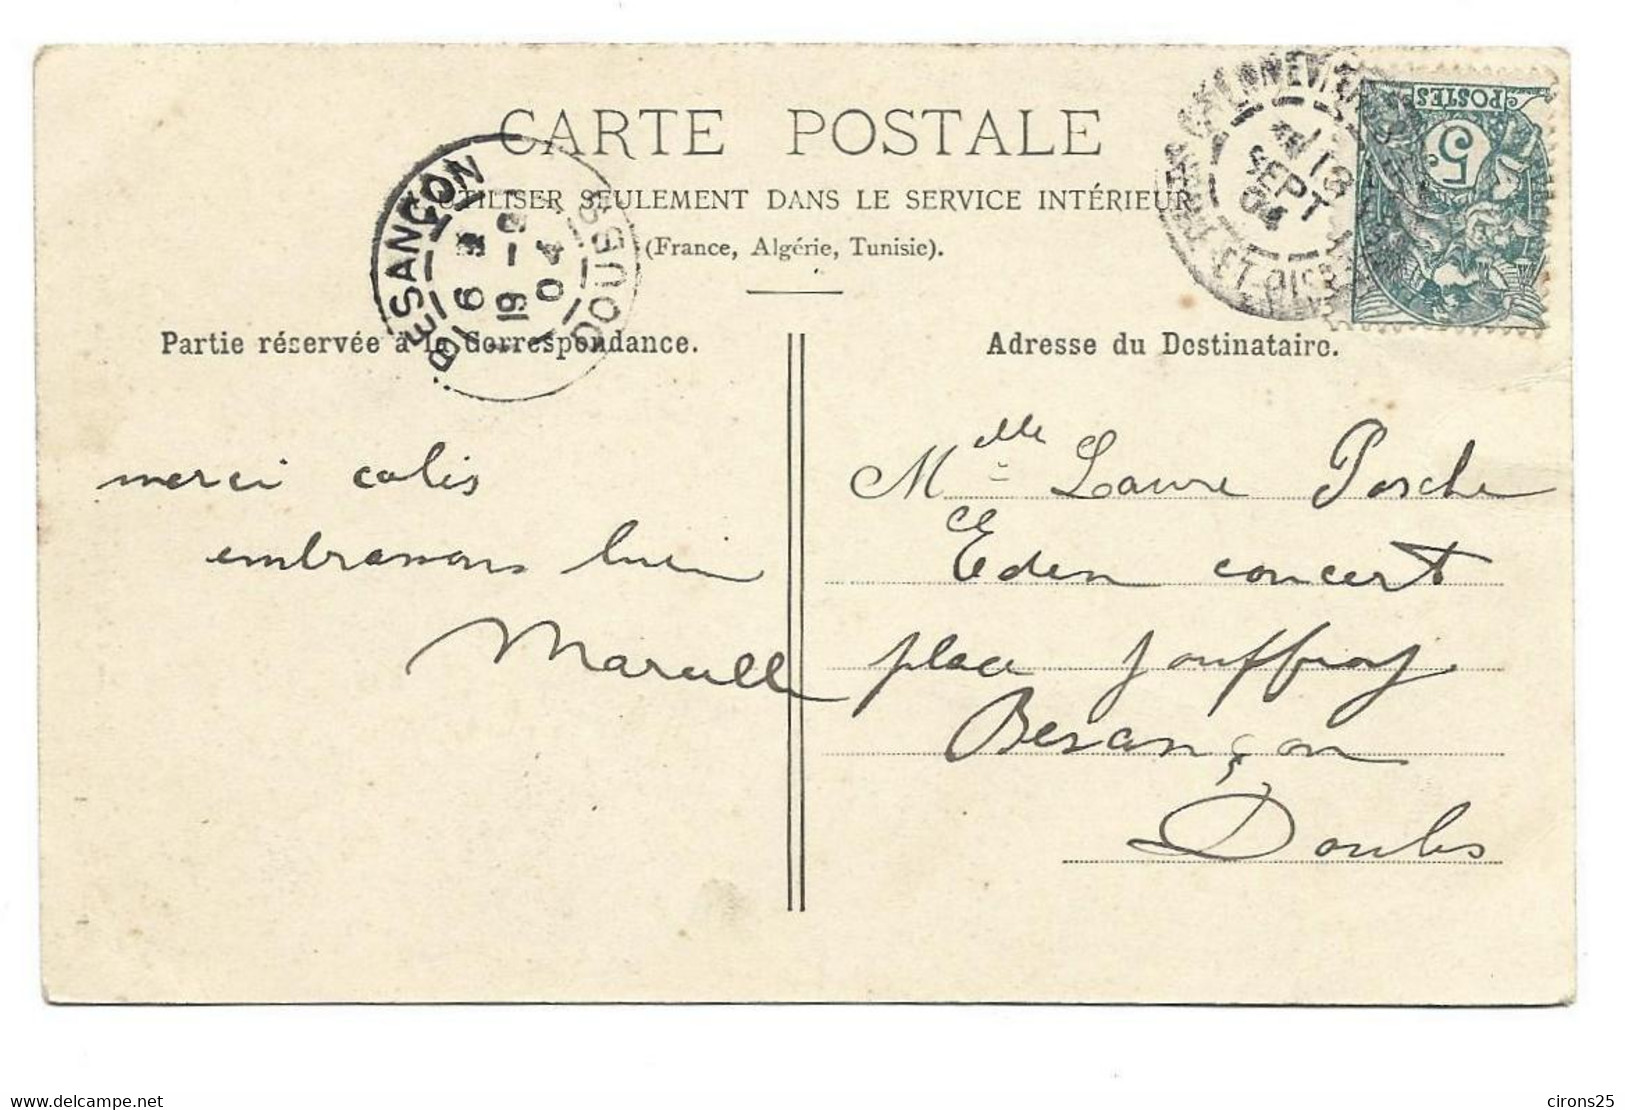 CARTE POSTALE
UTILISER SEULEMENT DANS LE SERVICE INTÉRIEUR
(France, Algérie, Tunisie).
POSTES
5c
18
SEPT
04
ET-OISE
BESANÇON
DOUBS
19 - 9
04
Partie réservée à la Correspondance.
merci
embrassons bien
Marcelle
Adresse du Destinataire.
Melle Laure
Eden concert
place Jouffroy
Besançon
Doubs
www.delcampe.net
cirons25